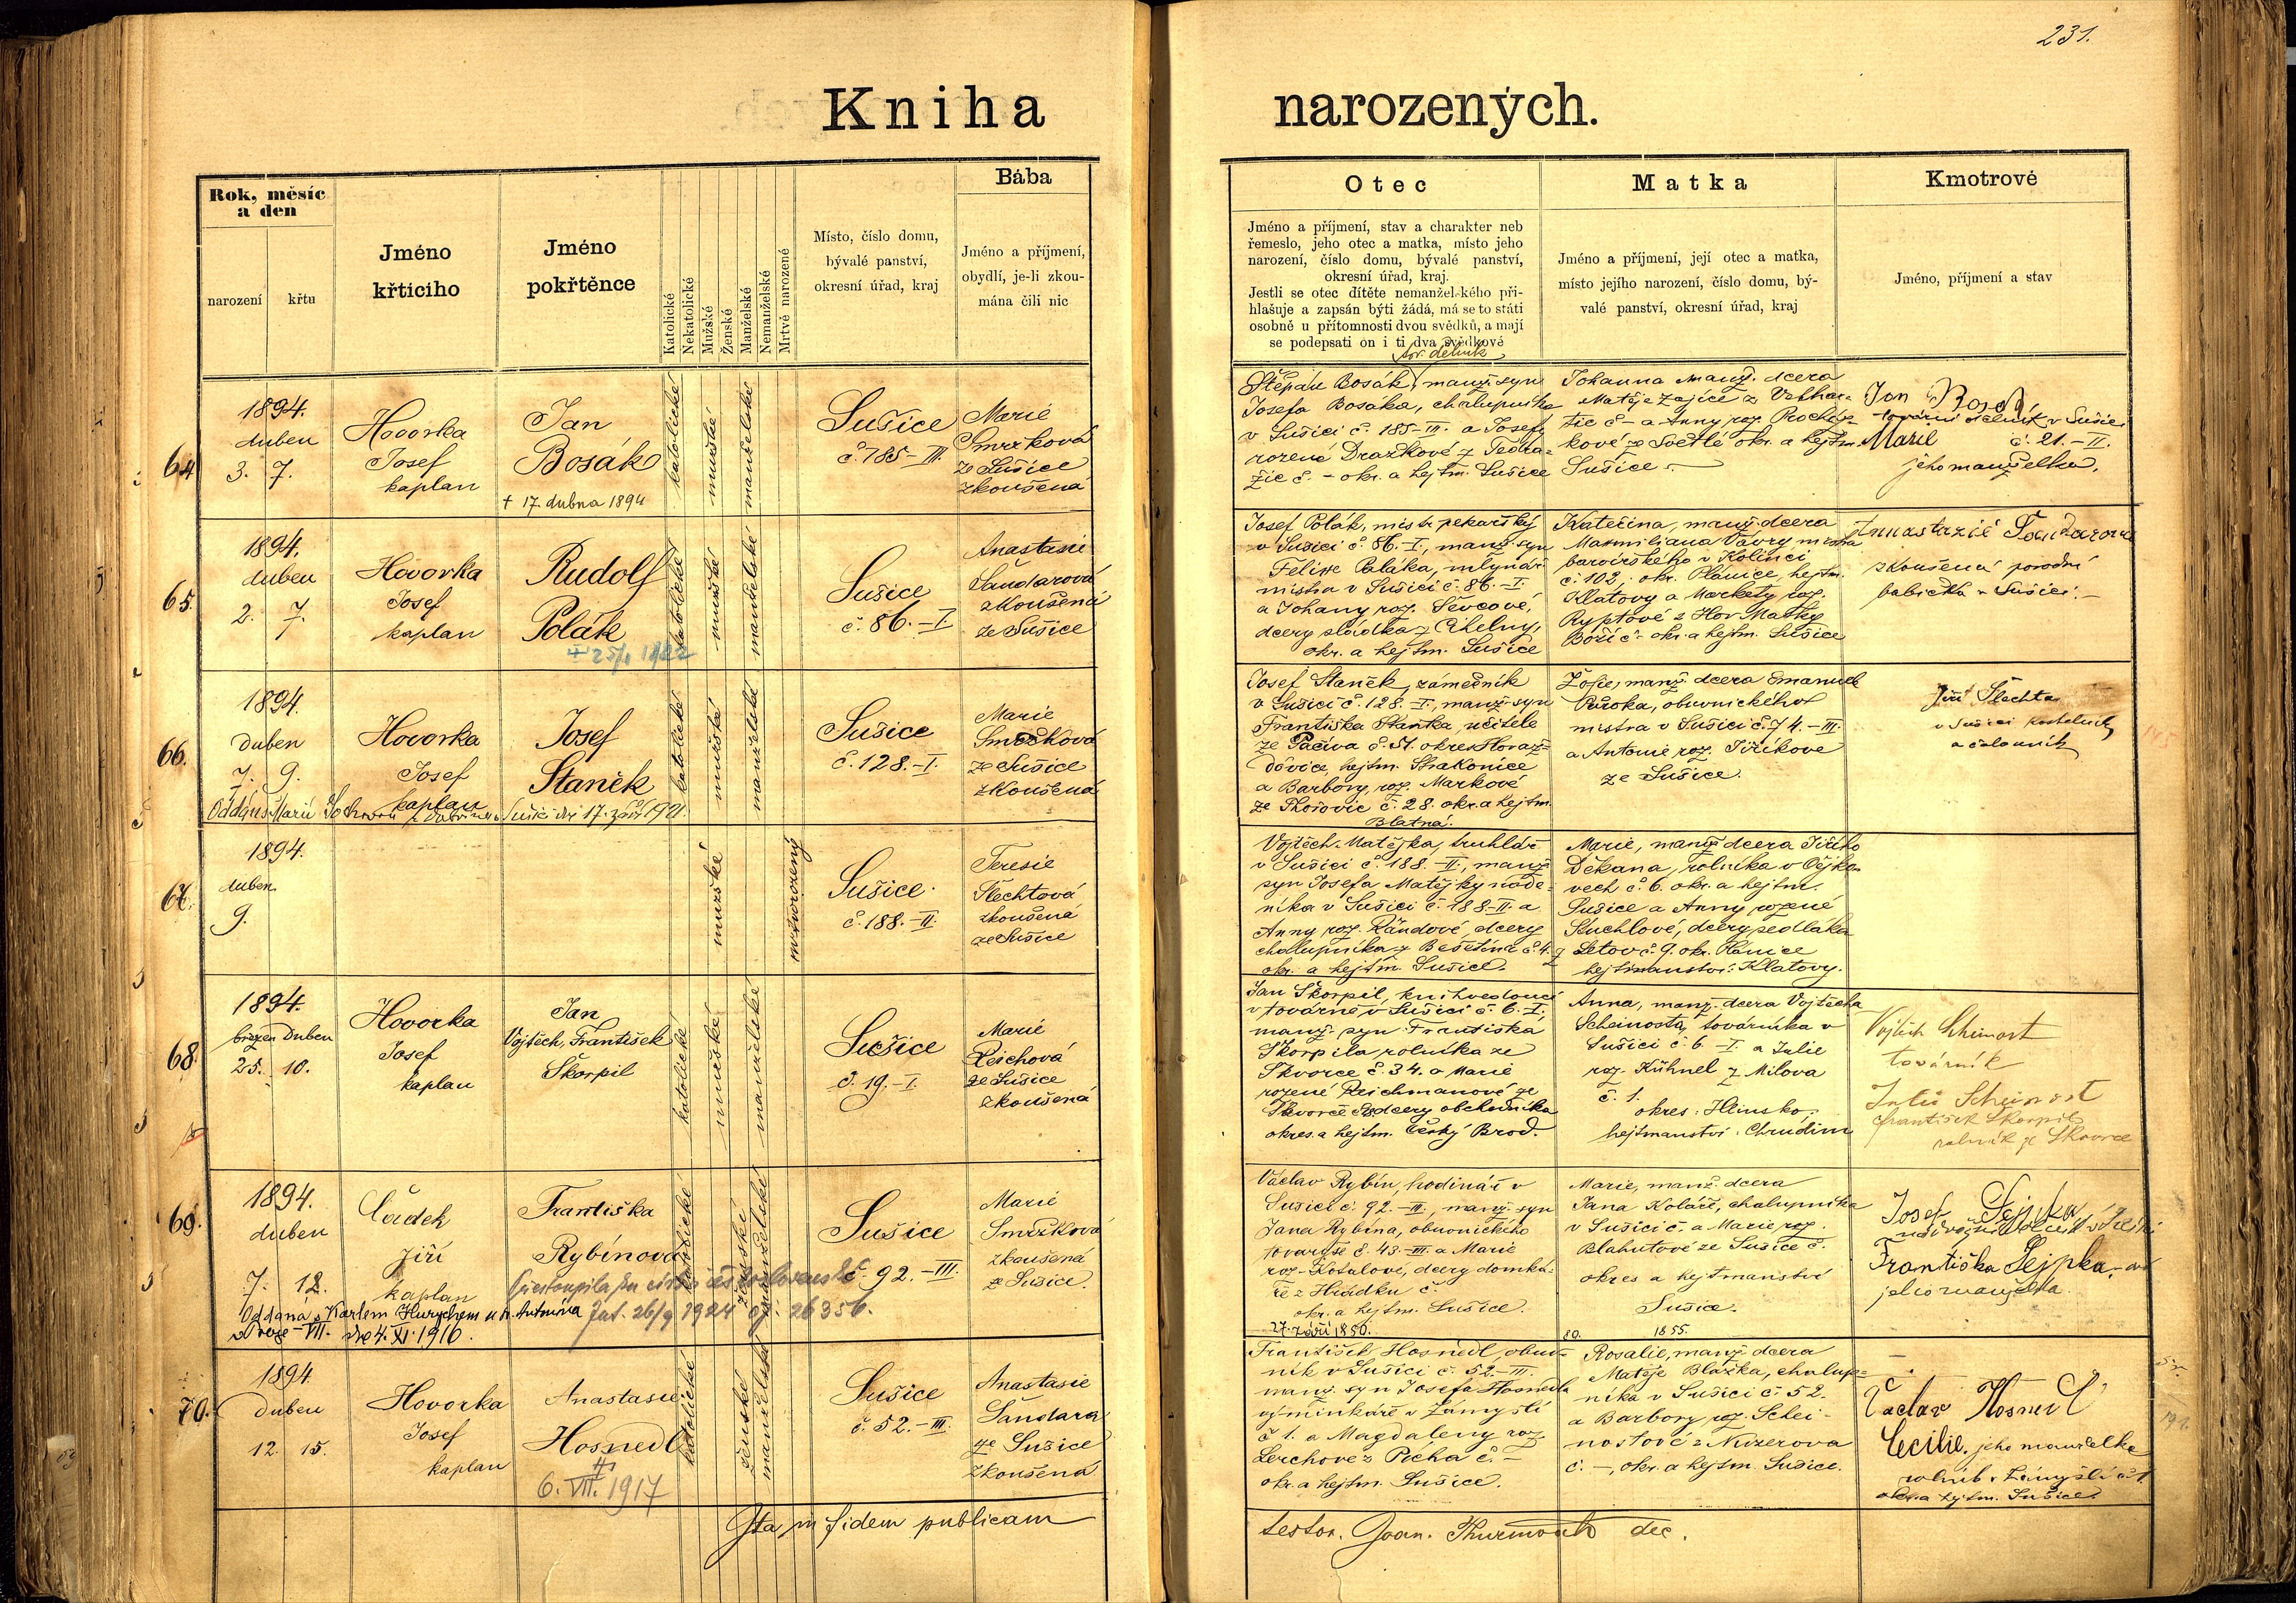 231.
Kniha narozených.
Rok, měsíc
a den
narození
křtu
Jméno
křtícího
Jméno
pokřtěnce
Katolické
Nekatolické
Mužské
Ženské
Manželské
Nemanželské
Mrtvě narozené
Místo, číslo domu,
bývalé panství,
okresní úřad, kraj
Bába
Jméno a příjmení,
obydlí, je-li zkou-
mána čili nic
Otec
Jméno a příjmení, stav a charakter neb
řemeslo, jeho otec a matka, místo jeho
narození, číslo domu, bývalé panství,
okresní úřad, kraj.
Jestli se otec dítěte nemanžel-kého při-
hlašuje a zapsán býti žádá, má se to státi
osobně u přítomnosti dvou svědků, a mají
se podepsati on i ti dva svědkové
Matka
Jméno a příjmení, její otec a matka,
místo jejího narození, číslo domu, bý-
valé panství, okresní úřad, kraj
Kmotrové
Jméno, příjmení a stav
64
1894.
duben
3. 7.
Hovorka
Josef
kaplan
Jan
Bosák
† 17. dubna 1894
katolické
mužské
manželské
Sušice
č. 185-III.
Marie
Smrzková
ze Sušice
zkoušená
tov. dělník
Štěpán Bosák, manž. syn
Josefa Bosáka, chalupníka
v Sušici č. 185-III. a Josefy
rozené Drazkové z Tedra-
žic č. - okr. a hejtm. Sušice
Johanna manž. dcera
Matěje Zajíce z
tic č - a Anny roz. Procház-
kové ze Světlé okr. a hejtm.
Sušice.
Jan Bosák
tovární dělník v Sušici
Marie č. 21.-II.
jeho manželka.
65.
1894.
duben
2. 7.
Hovorka
Josef
kaplan
Rudolf
Polák
katolické
mužské
manželské
Sušice
č. 86.-I
Anastasie
Šandarová
zkoušená
ze Sušice
Josef Polák, mistr pekařský
v Sušici č. 86.-I., manž. syn
Felixe Poláka, mlynář.
mistra v Sušici č. 86.-I.
a Johany roz. Ševcové,
dcery sládka z Cihelny,
okr. a hejtm. Sušice
Kateřina, manž. dcera
Maxmiliana Vávry mistra
barvířského v Kolinci
č. 102, okr. Plánice, hejtm.
Klatovy a Markety roz.
Ryptové z Hor Matky
Boží č - okr. a hejtm. Sušice
Anastazie Šandarová
zkoušená porodní
babička v Sušici.-
66.
1894.
Duben
7. 9.
Hovorka
Josef
kaplan
Josef
Staněk
katolické
mužské
manželské
Oddán s Marií v Sušici dne 17. září 1921.
Sušice
č. 128.-I.
Marie
Smrzková
ze Sušice
zkoušená
Josef Staněk, zámečník
v Sušici č. 128.-I., manž. syn
Františka Staňka, učitele
ze Pačiva č. 51. okres Horaž-
ďovice, hejtm. Strakonice
a Barbory, roz. Markové
ze č. 28. okr. a hejtm.
Blatná.
Žofie, manž. dcera Emanuela
obuvnického
mistra v Sušici č. 74.-III.
a Antonie roz. Jiříkove
ze Sušice.
Jiří Šlechta
v Sušici kostelník
a čalouník
67.
1894.
duben
9.
mužské
mrtvorozený
Sušice
č. 188.-II.
Teresie
Šlechtová
zkoušená
ze Sušice
Vojtěch Matějka, truhlář
v Sušici č. 188.-II., manž.
syn Josefa Matějky náde-
níka v Sušici č. 188-II. a
Anny roz. Rándové, dcery
chalupníka z Bešetína č. 4.
okr. a hejtm. Sušice.
Marie, manž. dcera Jiřího
Děkana, rolníka v Čejko-
vech č. 6. okr. a hejtm.
Sušice a Anny rozené
Stuchlové, dcery sedláka
z Letov č. 9. okr. Plánice
hejtmanství: Klatovy.
68.
1894.
březen Duben
25. 10.
Hovorka
Josef
kaplan
Jan
Vojtěch, František
Škorpil
katolické
mužské
manželské
Sušice
č. 19.-I.
Marie
Reichová
ze Sušice
zkoušená
Jan Škorpil, knihvedoucí
v továrně v Sušici č. 6.-I.,
manž. syn Františka
Škorpila rolníka ze
Skvorce č. 34. a Marie
rozené Reichmanové ze
Skvorce dcery obchodníka
okres. a hejtm. Český Brod.
Anna, manž. dcera Vojtěcha
Scheinosta, továrníka v
Sušici č. 6.-I. a Julie
roz. Kühnel z Milova
č. 1.
okres: Hlinsko.
hejtmanství: Chrudim
Vojtěch Scheinost
továrník
Julie Scheinost
František Škorpil
rolník ze Skvorce
69.
1894.
duben
7. 12.
Čadek
Jiří
kaplan
Františka
Rybínová
katolické
ženské
manželské
přestoupila ku církvi československé
Jat. 26/9 1924 čj: 26356.
Oddána s Karlem Hurychem u sv. Antonína
v Praze-VII. dne 4. XI. 1916.
Sušice
č. 92.-III.
Marie
Smrzková
zkoušená
ze Sušice
Václav Rybín, hodinář v
Sušici č. 92.-III., manž. syn
Jana Rybína, obuvnického
tovaryše č. 43.-III. a Marie
roz. Košalové, dcery domká-
ře z Hrádku č.
okr. a hejtm. Sušice.
Marie, manž. dcera
Jana Koláře, chalupníka
v Sušici č. a Marie roz.
Blahutové ze Sušice č.
okres a hejtmanství
Sušice.
Josef Sejpka
Františka Sejpka
jeho manželka
70.
1894
Duben
12. 15.
Hovorka
Josef
kaplan
Anastasie
Hosnedl
6. VII. 1917
katolické
ženské
manželské
Sušice
č. 52.-III.
Anastasie
Šandara
ze Sušice
zkoušená
27. září 1850.
František Hosnedl, obuv-
ník v Sušici č. 52-III.
manž. syn Josefa Hosnedla
výminkáře v Zámyšli
č 1. a Magdaleny roz.
Lerchove z Picha č. -
okr. a hejtm. Sušice.
1855.
Rosalie, manž. dcera
Matěje Blažka, chalup-
níka v Sušici č. 52.
a Barbory roz. Schei-
nostové z Nuzerova
č. -, okr. a hejtm. Sušice.
Václav Hosnedl
Cecilie, jeho manželka
rolník v Zámyšli č. 1.
okr. a hejtm. Sušice.
Ita, in fidem publicam
testor. Joan. dec.